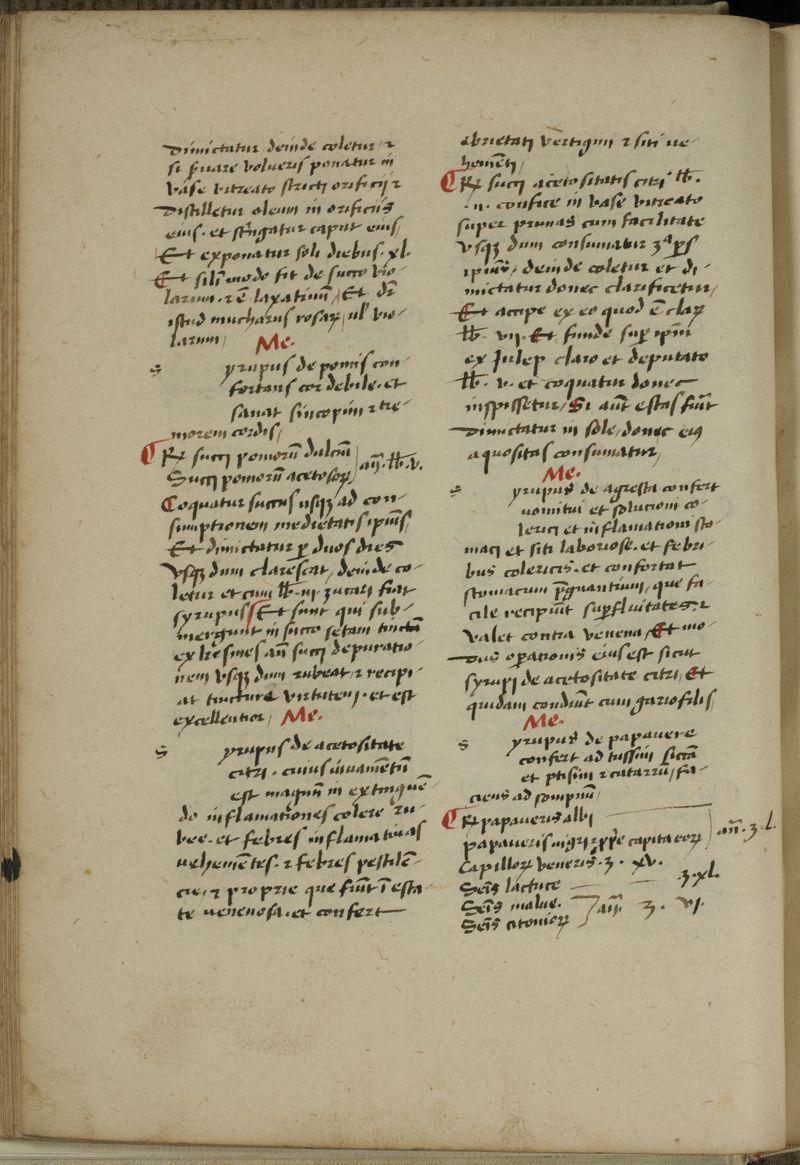 Dimictatur deinde coletur ⁊
si ẜuare volueris ponatur in
vase vitreato stricti orificij ⁊
Distilletur oleum in orificiis
eius · et st̄ngatur caput eius /
Et exponatur soli diebus · xl ·
Et sil̄i modo fit de succo vio-
larum · ⁊ ē laxatiuū / Et dr̄
istud mucharus rosaꝝ / ul' vio-
larum / Me.
s yrupus de pomis con-
fortans cor debile · et
sanat sincopim ⁊ tre-
morem cordis /
℞ succi pomorū dulciū
Succi pomorū acetosoꝝ / an̄ · lb · v ·
Coquatur succus usqꝫ ad con-
sumptionem medietatis ipius /
Et dimictatur ꝑ duos dies
Vsqꝫ dum clarescat / deinde co-
letur et cum lb · iij zucari fiat
syrupus Et sunt qui sub-
mergunt in succo setam tinctā
ex h̄esmes an̄ succi depuratio-
nem vsqꝫ dum rubeat ⁊ recipi-
at tincture virtutem · et est
excellentior / Me.
s yrupus de acetositate
citri · cuius iuuamentū
est magnū in extinguē-
do inflamationes colere ru-
bee · et febres inflamatiuas
uehemētes · ⁊ febres pestilē-
cie / ⁊ proprie que fiūt ī esta-
te uenenosa · et confert
ebrietati vertigini ⁊ siti ue-
hemēti /
℞ succi acetositatis citri lb ·
· ij · confice in vase vitreato
super prunas cum facilitate
vsqꝫ dum consumatur 3ᵃ ꝑs
ipius / deinde coletur et di-
mictatur donec clarificetur /
Et accipe ex eo quod ē claꝝ
lb · vij · Et funde suꝑ ipm̄
ex Julep claro et deputato
lb · v · et coquatur donec
inspissetur / Si aūt estas fūit
Dimictatur in sole / donec eiꝰ
aquositas consumatur /
Me.
s yrupus de agresta confert
uomitui et solucioni co-
lerici et inflamationi sto-
maci et siti laboriose · et febri-
bus colericis · et confortat
stomacum p̄gnantium / que fa-
cile recipiūt suꝑfluitates · ⁊
valet contra venena / Et mo-
dus oꝑationis eius est sicut
syrupi de acetositate citri / Et
quidam condiūt cum gariofilis /
Me.
s yrupus de papauere
confert ad tussim siccā
et ptisim ⁊ catarrū / fa-
ciens ad sompnū /
℞ papaueris albi
papaueris nigri capita eoꝝ / an̄ · ʒ · l ·
Capilloꝝ veneris · ʒ · xv ·
Seīs lactuce ʒ · xl ·
Seīs malue ·
Seīs citonioꝝ an̄ · ʒ · vj ·